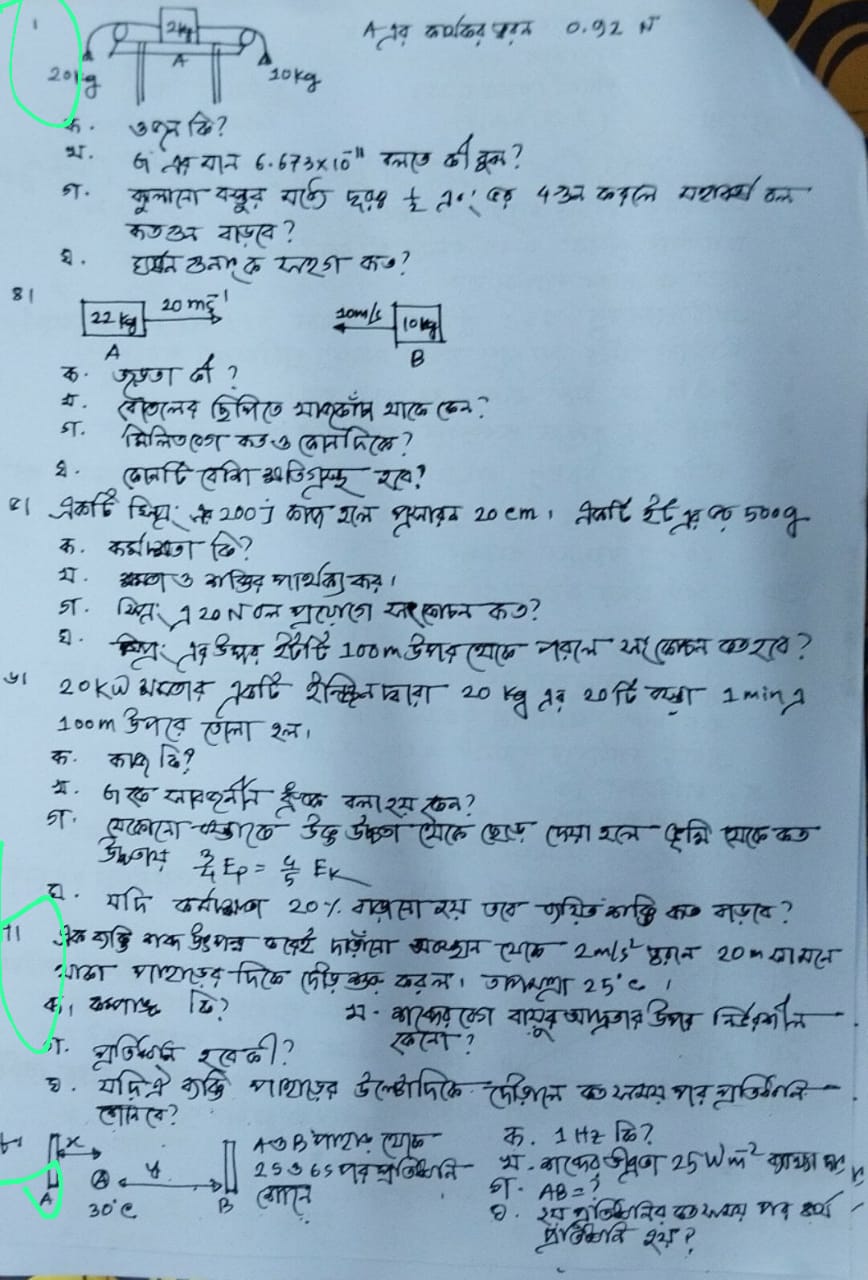 2kg A এর কার্যকর ত্বরন 0.92 N
A
20kg 10kg
ক. ওজন কি?
খ. G এর মান 6.673×10⁻¹¹ বলতে কী বুঝ?
গ. ঝুলানো বস্তুর মধ্যে দূরত্ব ½ এবং ভর 4গুন করলে মহাকর্ষ বল
কতগুন বাড়বে?
ঘ. ঘর্ষন গুনাংক কত?
৪। 22 kg 20 ms⁻¹ 10m/s 10kg
A B
ক. জড়তা কী?
খ. বোতলের ছিপিতে খাজকাঁটা থাকে কেন?
গ. মিলিতবেগ কত ও কোনদিকে?
ঘ. কোনটি বেশি ক্ষতিগ্রস্থ হবে?
৫। একটি স্প্রিং 200 J কাজ হলে প্রসারন 20 cm, একটি ইট এর ভর 500g
ক. কর্মদক্ষতা কি?
খ. ক্ষমতা ও শক্তির পার্থক্য কর।
গ. স্প্রিং এ 20 N বল প্রয়োগে সংকোচন কত?
ঘ. স্প্রিং এর উপর ইটটি 100m উপর থেকে পরলে সংকোচন কত হবে?
৬। 20KW ক্ষমতার একটি ইঞ্জিন দ্বারা 20 kg এর 20টি বস্তা 1 min এ
100m উপরে তোলা হল।
ক. কাজ কি?
খ. G কে সার্বজনীন ধ্রুবক বলা হয় কেন?
গ. যেকোনো বস্তাকে উক্ত উচ্চতা থেকে ছেড়ে দেয়া হলে ভূমি থেকে কত
উচ্চতায় ¾ Eₚ = ⅘ Eₖ
ঘ. যদি কর্মদক্ষতা 20% বাড়ানো হয় তবে ব্যয়িত শক্তি কত বাড়বে?
7। এক ব্যক্তি শব্দ উৎপন্ন করেই দাড়ানো অবস্থান থেকে 2m/s² ত্বরনে 20 m সামনে
থাকা পাহাড়ের দিকে দৌড় শুরু করল। তাপমাত্রা 25°c।
ক। কম্পাঙ্ক কি? খ. শব্দের বেগ বায়ুর আদ্রতার উপর নির্ভরশীল
কেনো?
গ. প্রতিধ্বনি হবে কী?
ঘ. যদি ঐ ব্যক্তি পাহাড়ের উল্টোদিকে দৌড়ালে কত সময় পর প্রতিধ্বনি
শোনবে?
x y A ও B পাহাড় থেকে
A 30°c B 2s ও 6s পর প্রতিধ্বনি
শোনে
ক. 1 Hz কি?
খ. শব্দের তীব্রতা 25 Wm⁻² ব্যাখ্যা কর
গ. AB = ?
ঘ. ২য় প্রতিধ্বনির কত সময় পর ৪র্থ
প্রতিধ্বনি হয়?